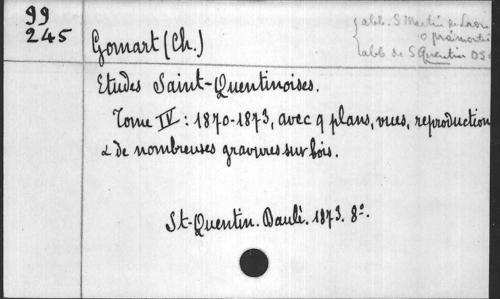 99
245
Gomart (Ch.)
abb. S Martin de Laon
o prémontré
abb de S Quentin OS
Etudes Saint-Quentinoises.
Tome IV : 1870-1873, avec 9 plans, vues, reproduction
& de nombreuses gravures sur bois.
St-Quentin. Daulé. 1873. 8º.